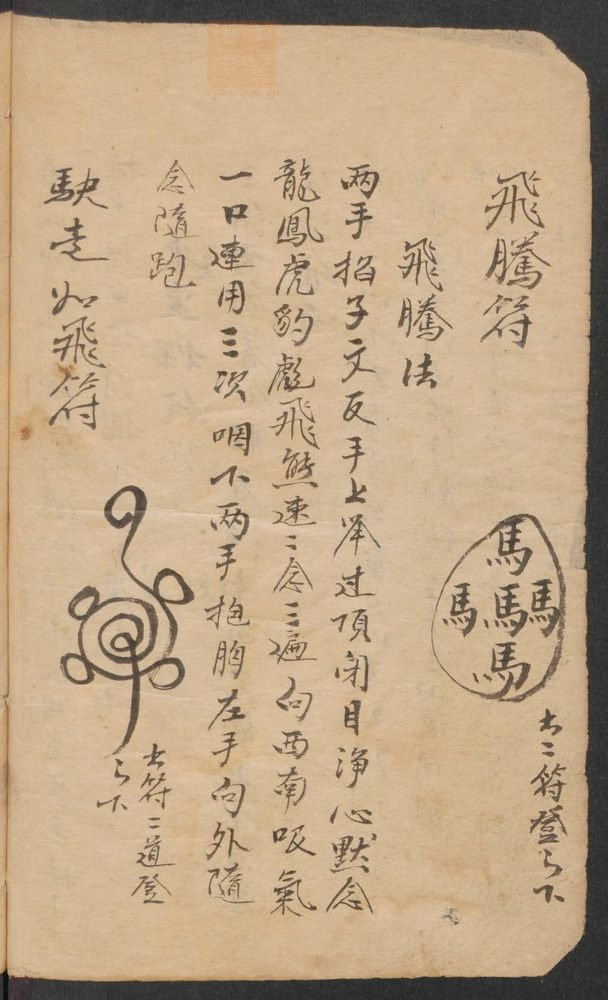 飛騰符
馬
馬馬馬
馬
二符登下
飛騰法
两手掐子文反手上举过頂闭目淨心黙念
龍鳳虎豹彪飛熊速〻念三遍向西南吸氣
一口連用三次咽下两手抱胸左手向外隨
念隨跑
駃走如飛符
符二道登
下